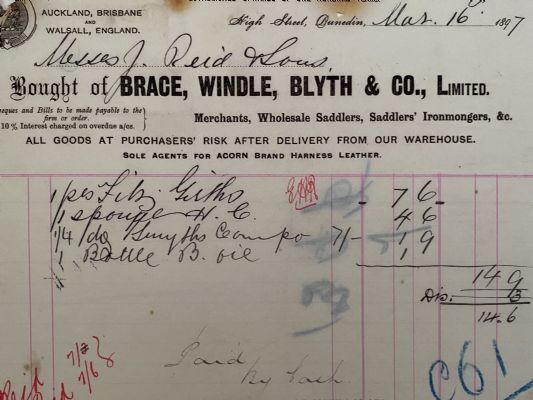 AUCKLAND, BRISBANE
AND
WALSALL, ENGLAND.
High Street, Dunedin, Mar. 16 1897
Messrs J. Reid & Sons,
Bought of BRACE, WINDLE, BLYTH & CO., LIMITED.
eques and Bills to be made payable to the
firm or order.
10 % Interest charged on overdue a/cs.
Merchants, Wholesale Saddlers, Saddlers' Ironmongers, &c.
ALL GOODS AT PURCHASERS' RISK AFTER DELIVERY FROM OUR WAREHOUSE.
SOLE AGENTS FOR ACORN BRAND HARNESS LEATHER.
1 prs Girths 7 6
1 sponge H. C. 4 6
1/4 do Smyths Compo 7/- 1 9
1 Bottle B. oil 1
14 9
Dis. 3
14.6
7/3
7/6
Paid
By Cash
C61